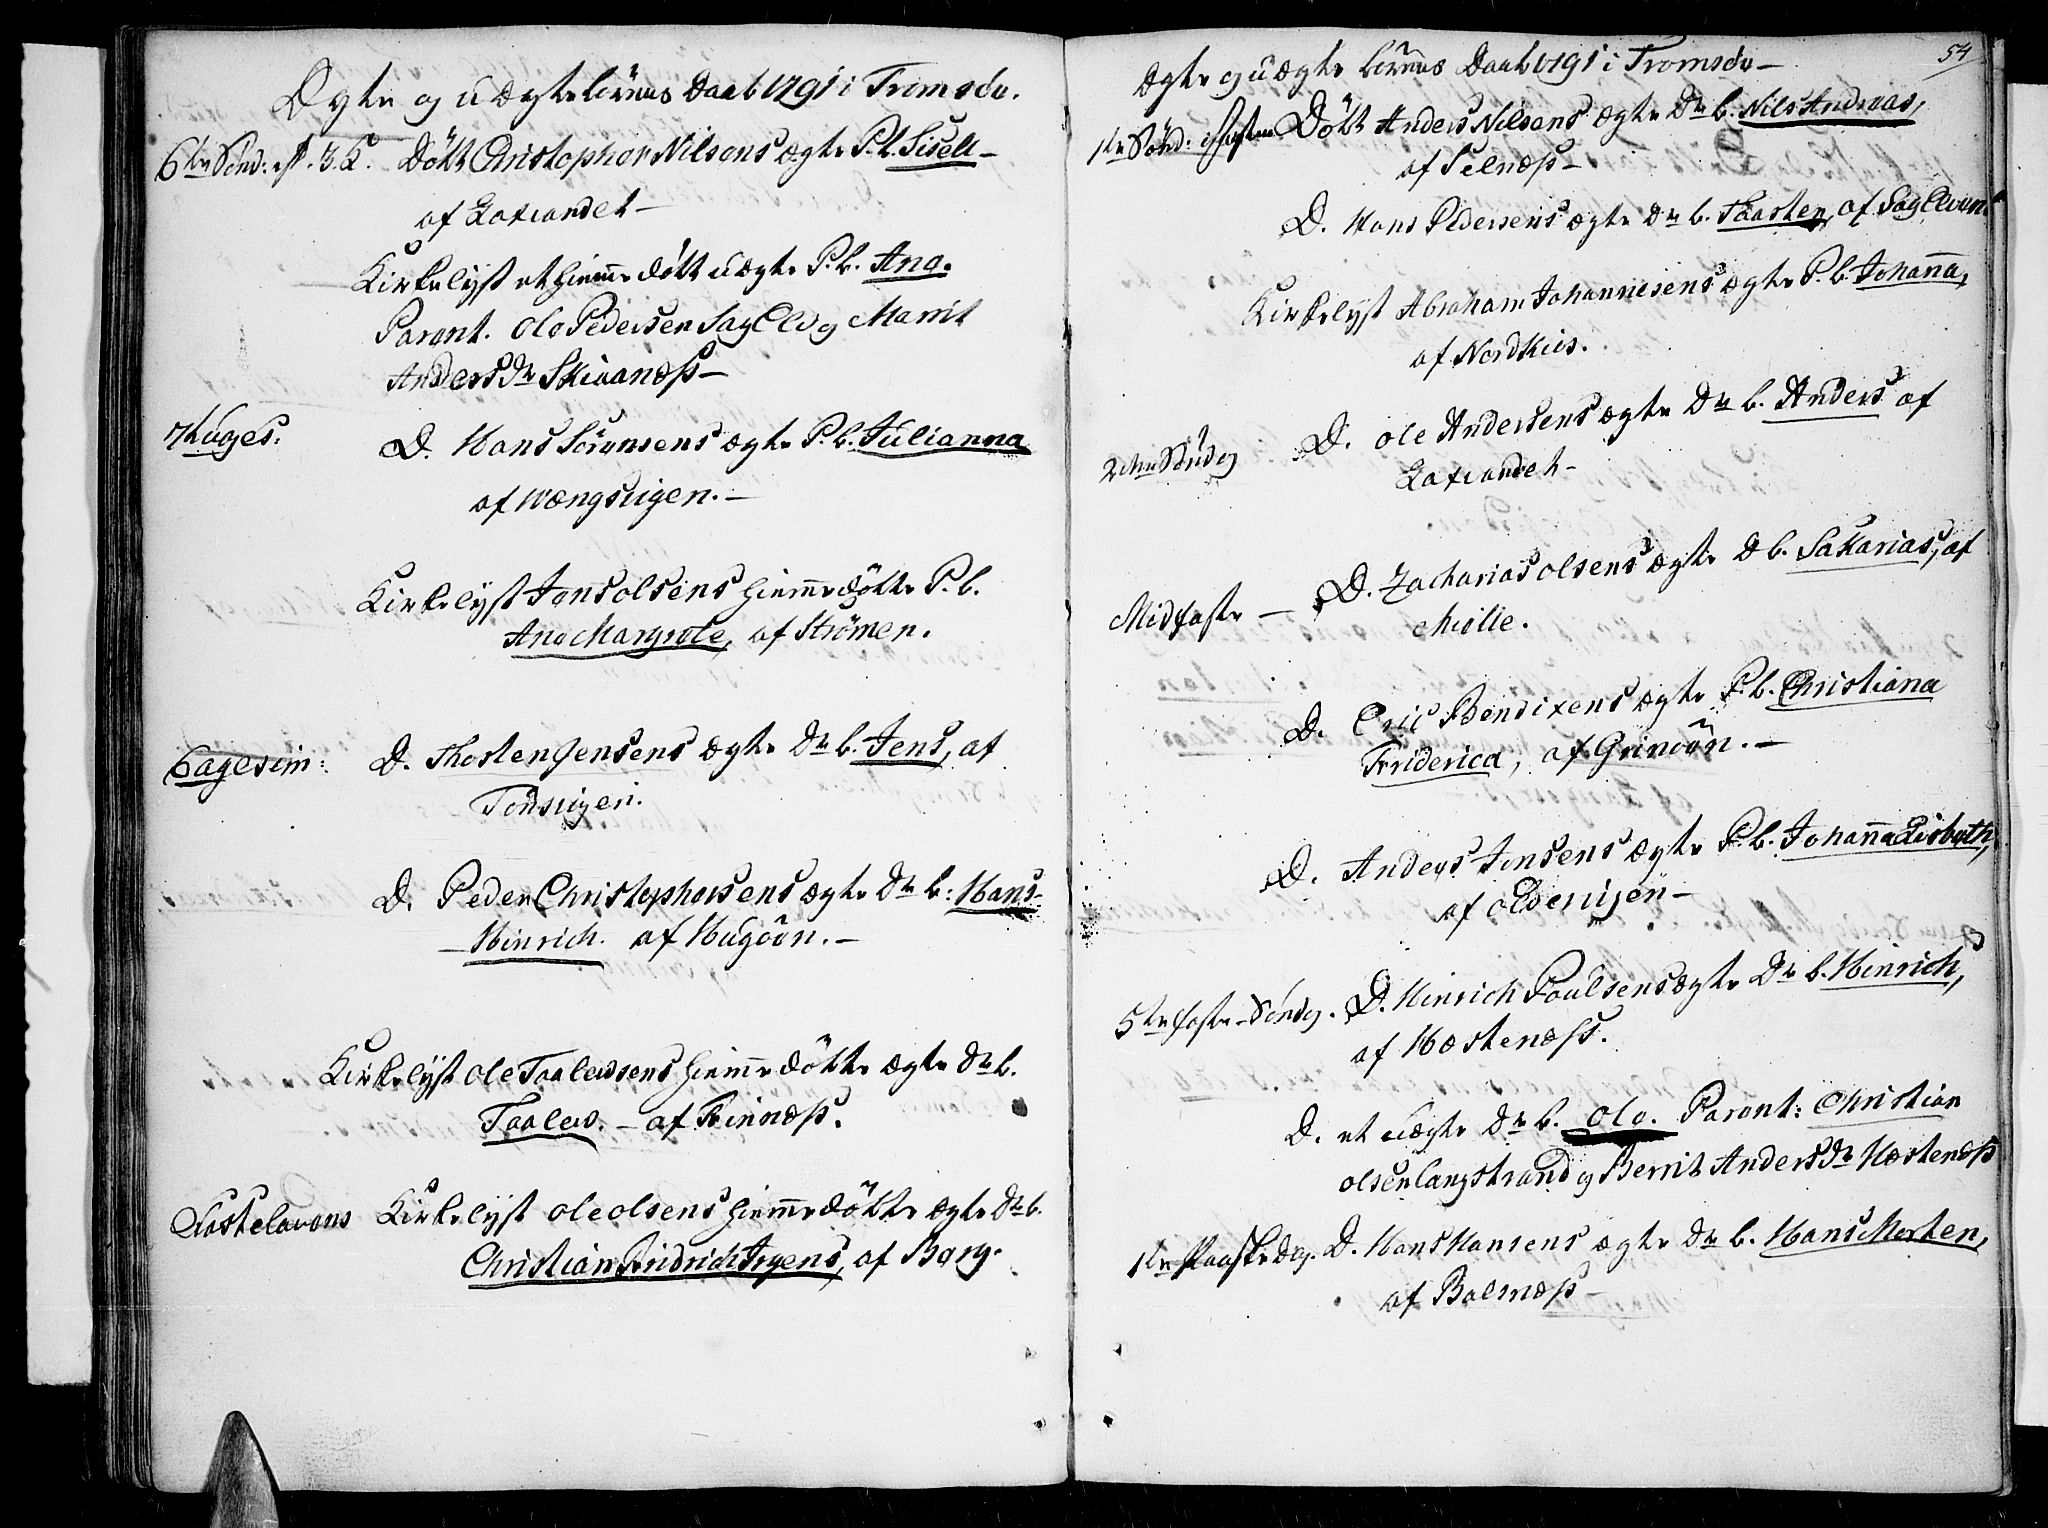 Ægte og uægte börnes Daab 1791 i Tromsöe.
6te Sönd: eft. 3. K. Döbt Christopher Nilsens ægte P.b. Sisell
af Laxvandet
Kirkelyst et hiemme döbt uægte P.b. Ana.
Parent. Ole Pedersen SagElv og Marrit
Anders Dr Skivanæss
7tuages: D. Hans Sörensens ægte P.b. Julianna
af Wængsvigen.
Kirkelyst Jens Olsens hiemme döbte P.b.
Ana Margrete, af Strömen.
Sagesim: D. Thosten Jensens ægte Dr.b. Jens, af
Tönsvigen.
D. Peder Christophersens ægte Dr b: Hans
Hinrich. af Hugöen.
Kirkelyst Ole Taalevsens hiemme döbte ægte Dr b.
Taalew. af Finnæss.
Fastelavens Kirkelyst Ole Olsens hiemme döbte ægte Dr b.
Christian Fridrich Irgens, af Berg.
54
Ægte og uægte börnes Daab 1791 i Tromsöe
1te Sönd: i fasten Döbt Anders Nilsens ægte Dr b. Nils Andreas,
af Selnæss
D. Hans Pedersens ægte Dr b. Thosten, af SagElven
Kirkelyst Abraham Johannesens ægte P.b. Johanna,
af Nordkios.
2den Söndag D. Ole Andersens ægte Dr b. Anders af
Laxvandet
Midfaste D. Zacharias Olsens ægte D b. Sakarias, af
Miölle.
D. Eric Bendixens ægte P.b. Christiana
Friderica, af Grinöün.
D. Anders Jensens ægte P.b. Johanna Lisbeth,
af Oldervigen
5te faste Söndag. D. Hinrich Poulsens ægte Dr b. Hinrich,
af Hæstenæss.
D. et uægte Dr b. Ole. Parent: Christian
Olsen Langstrand og Berrit Anders Dr Hæstenæss
1te Paaske Dag. D. Hans Hansens ægte Dr b. Hans Morten,
af Balsnæss